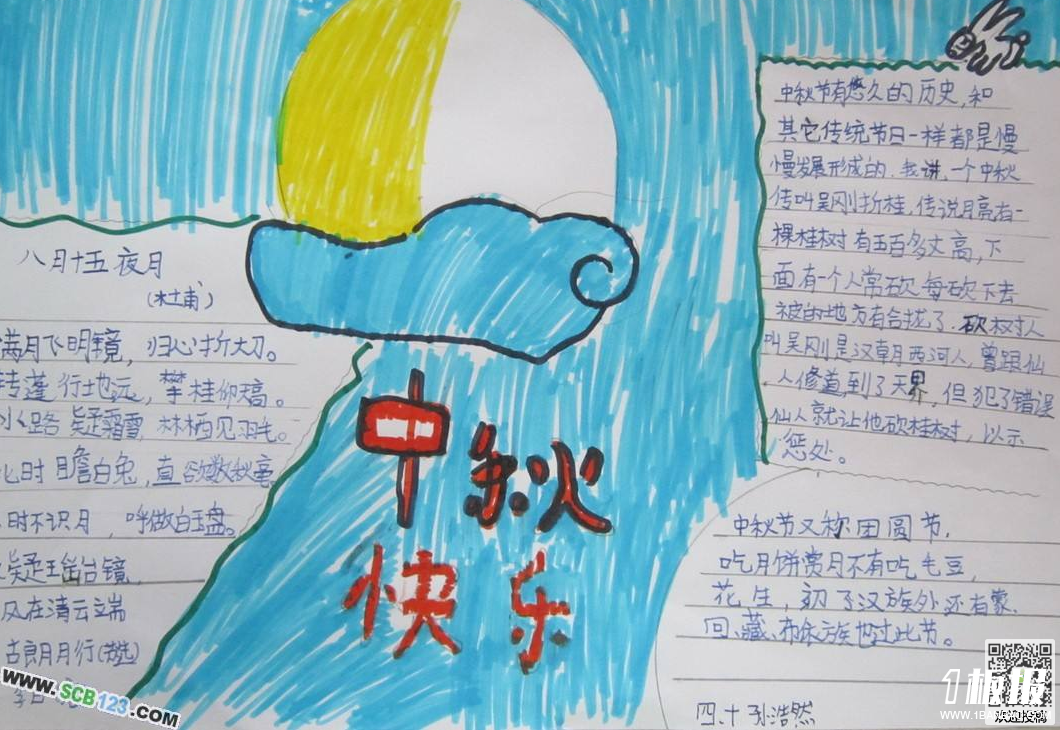 八月十五夜月
(杜甫)
满月飞明镜，归心折大刀。
转蓬行地远，攀桂仰天高。
水路疑霜雪，林栖见羽毛。
此时瞻白兔，直欲数秋毫。
时不识月，呼做白玉盘。
疑是瑶台镜，
风在清云端
古朗月行(节选)
中秋
快乐
中秋节有悠久的历史，和
其它传统节日一样都是慢
慢发展形成的，我讲，一个中秋
传叫吴刚折桂，传说月亮有一
棵桂树有五百多丈高，下
面有一个人常砍，每砍下去
被的地方有合拢了，砍树人
叫吴刚是汉朝月西河人，曾跟仙
人修道，到了天界，但犯了错误
仙人就让他砍桂树，以示
惩处。
中秋节又称团圆节，
吃月饼赏月不有吃毛豆，
花生，初了汉族外还有蒙、
回、藏、布依族也过此节。
四、十 孙浩然
www.SCB123.COM
1板报
WWW.1BANBAO.COM
欢迎投稿